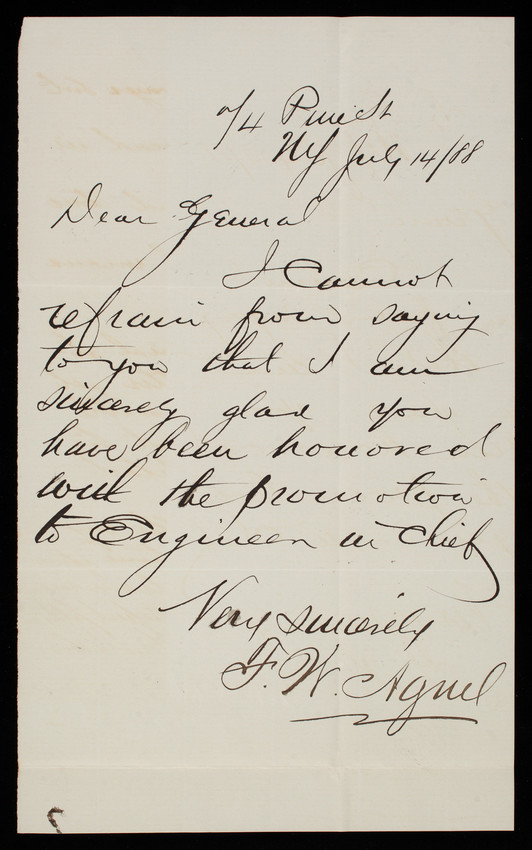 74 Pine St
NY July 14/88
Dear General
I Cannot
refrain from saying
to you that I am
sincerely glad you
have been honored
with the promotion
to Engineer in Chief
Very sincerely
F. W. Agnel